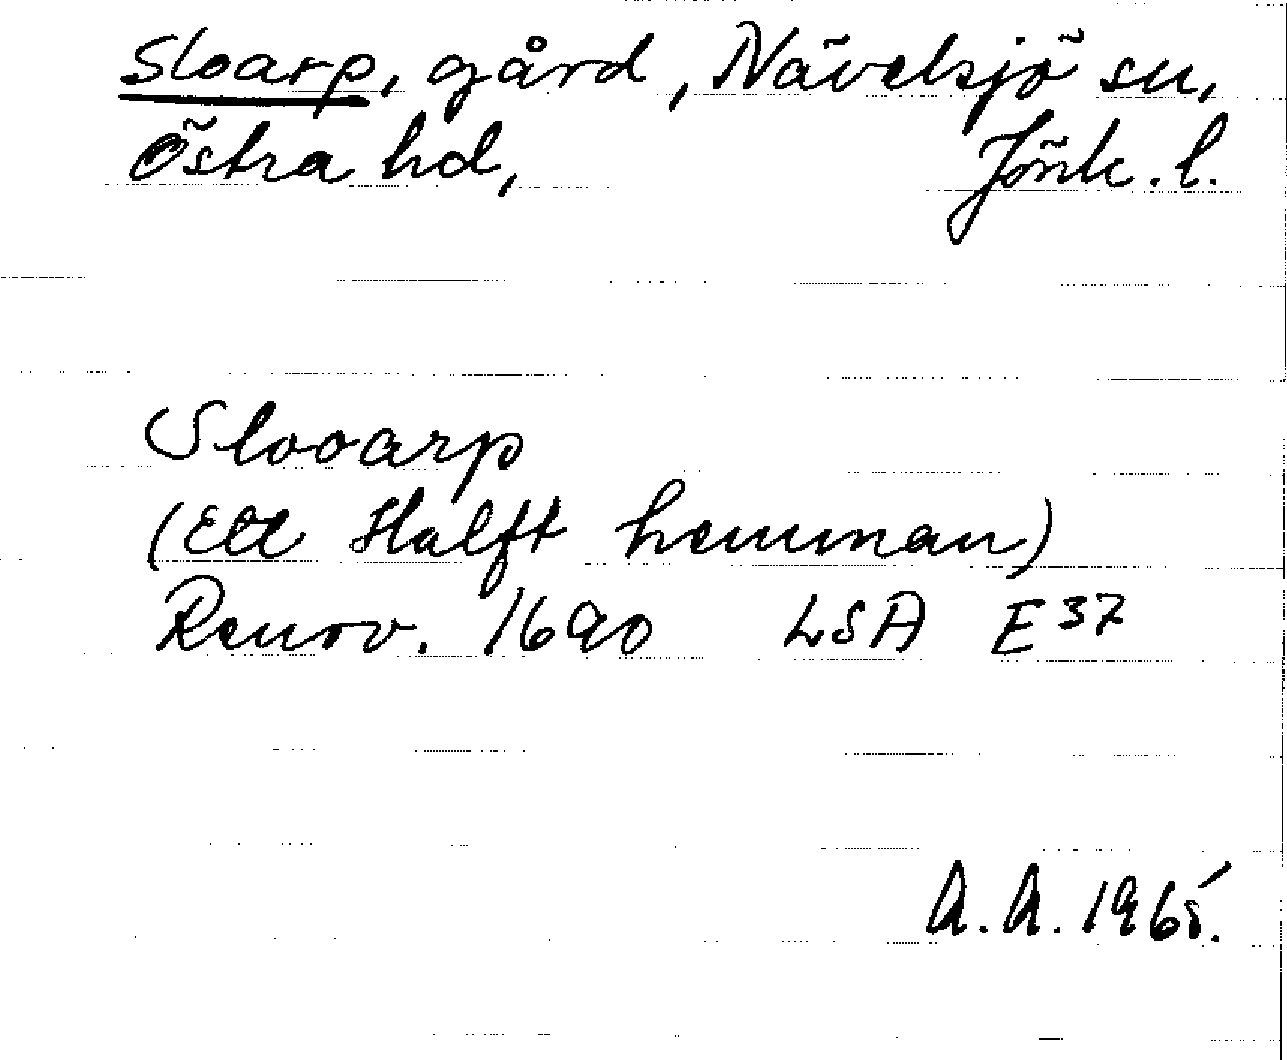 Sloarp, gård, Nävelsjö sn,
Östra hd, Jönk. l.
Slooarp
(Ett Halft hemman)
Renov. 1690 LSA E 37
A. A. 1965.